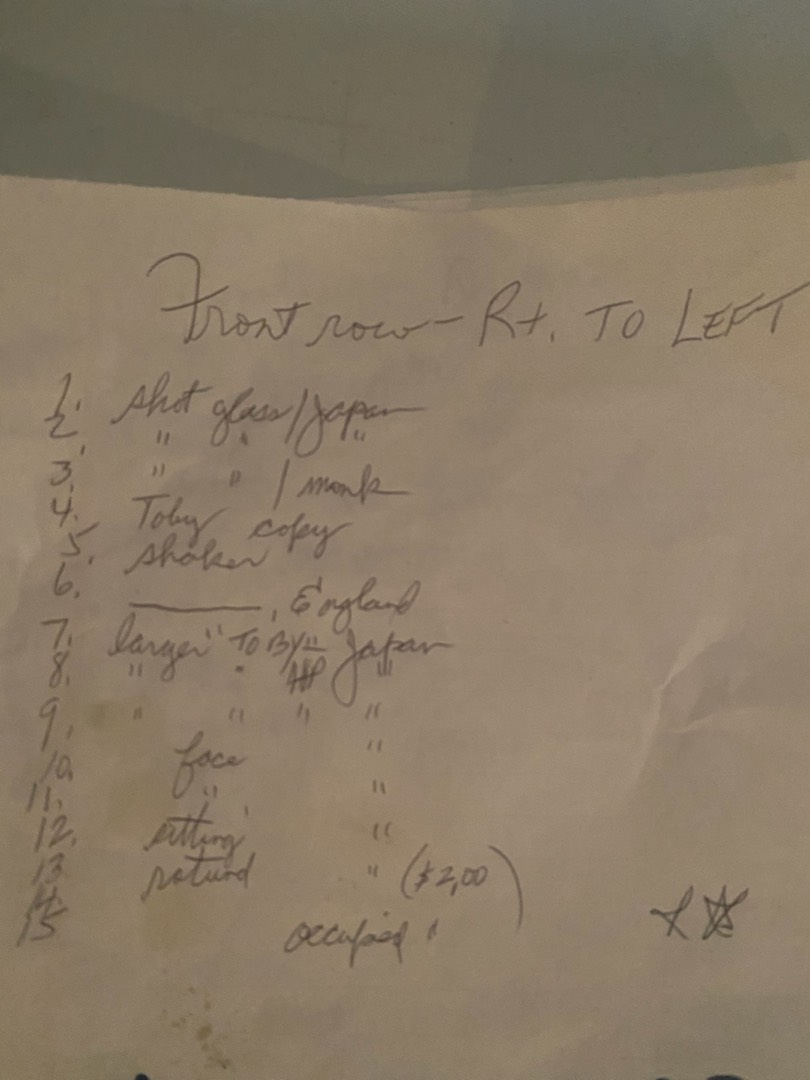 Front row - Rt. TO LEFT
1. shot glass / Japan
2 " " "
3. " " / monk
4. Toby copy
5. shaker
6. ________, England
7. larger " TOBY - Japan
8. " " "
9. " " " "
10. face "
11. " "
12. sitting "
13 rotund " ($2,00)
14
15 occupied "